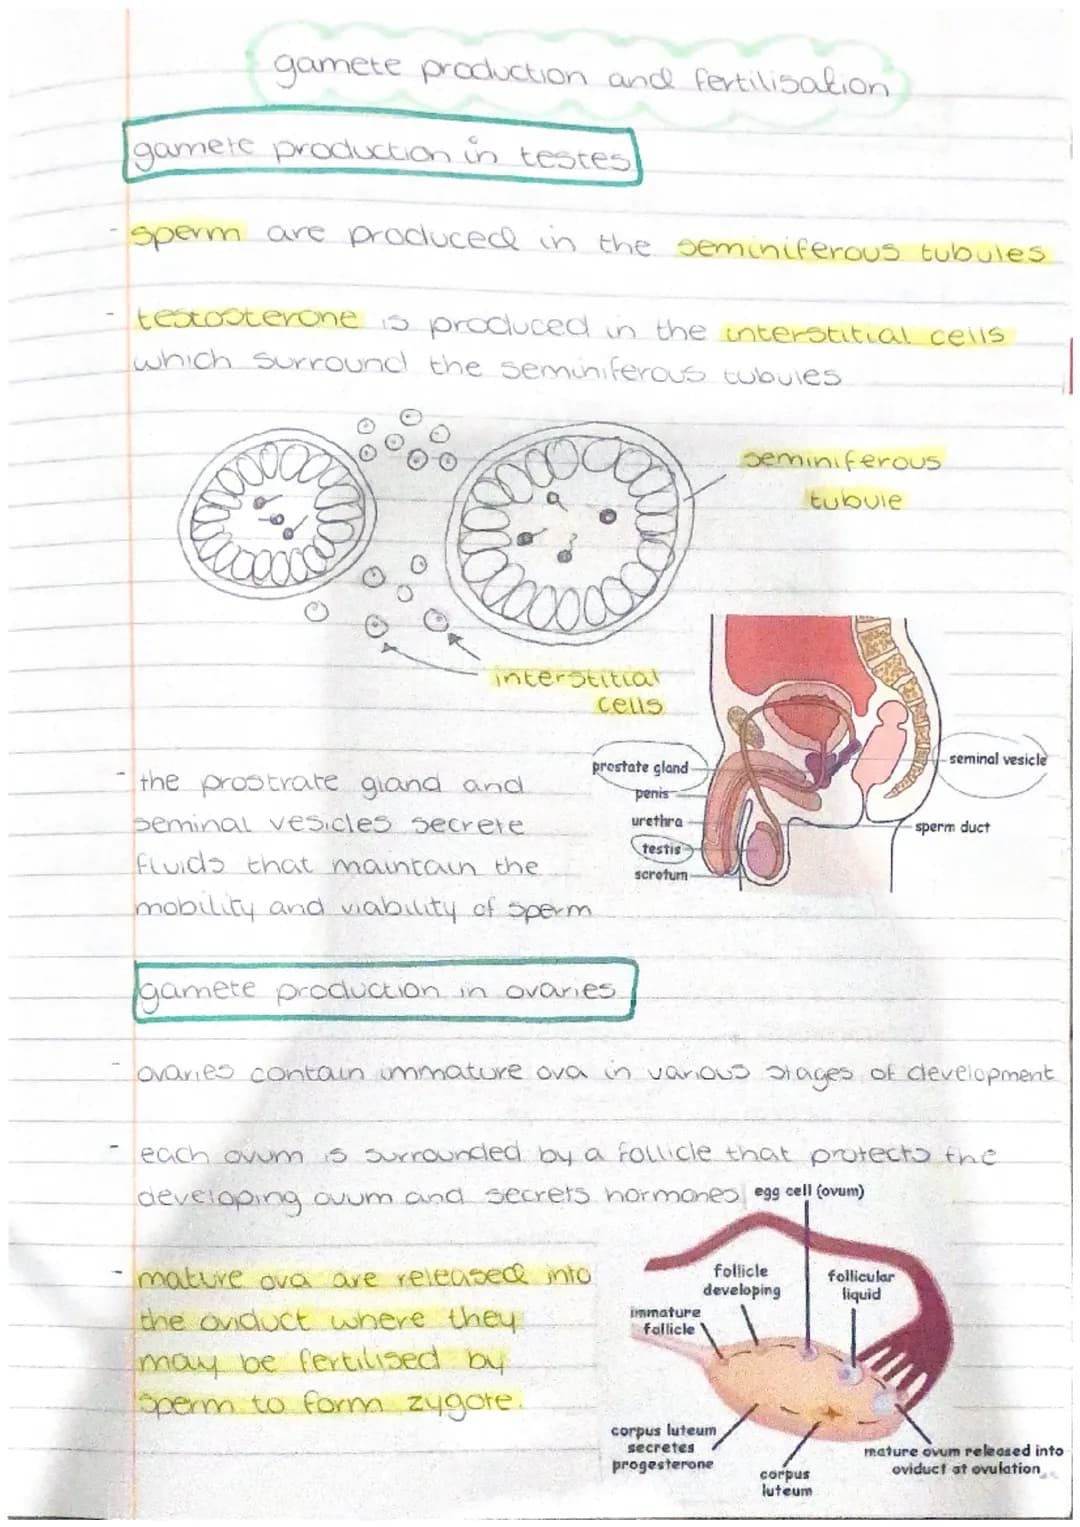 gamete production and fertilisation
gamete production in testes
- sperm are produced in the seminiferous tubules
- testosterone is produced in the interstitial cells
which surround the seminiferous tubules
seminiferous
tubule
interstitial
cells
- the prostrate gland and
seminal vesicles secrete
fluids that maintain the
mobility and viability of sperm
prostate gland
penis
urethra
testis
scrotum
seminal vesicle
sperm duct
gamete production in ovaries
- ovaries contain immature ova in various stages of development
- each ovum is surrounded by a follicle that protects the
developing ovum and secrets hormones
- mature ova are released into
the oviduct where they
may be fertilised by
sperm to form zygote.
egg cell (ovum)
follicle
developing
follicular
liquid
immature
follicle
corpus luteum
secretes
progesterone
corpus
luteum
mature ovum released into
oviduct at ovulation